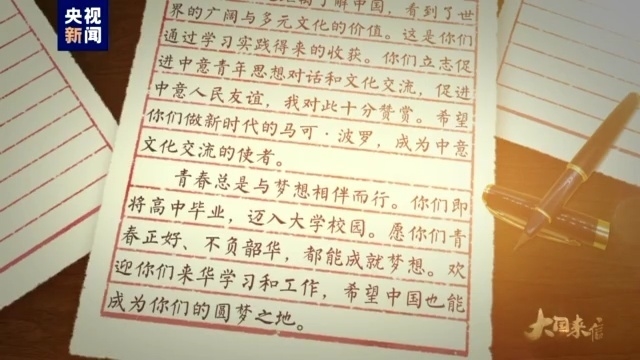 央视
新闻
了解中国,看到了世
界的广阔与多元文化的价值。这是你们
通过学习实践得来的收获。你们立志促
进中意青年思想对话和文化交流,促进
中意人民友谊,我对此十分赞赏。希望
你们做新时代的马可·波罗,成为中意
文化交流的使者。
青春总是与梦想相伴而行。你们即
将高中毕业,迈入大学校园。愿你们青
春正好、不负韶华,都能成就梦想。欢
迎你们来华学习和工作,希望中国也能
成为你们的圆梦之地。
大国来信